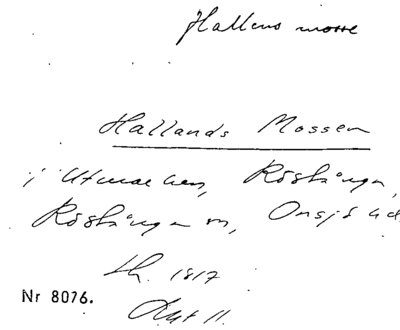 Hallens mosse
Hallands Mossen
i Utmarken, Röstånga,
Röstånga sn, Onsjö hd.
Lh. 1817
Akt 11.
Nr 8076.